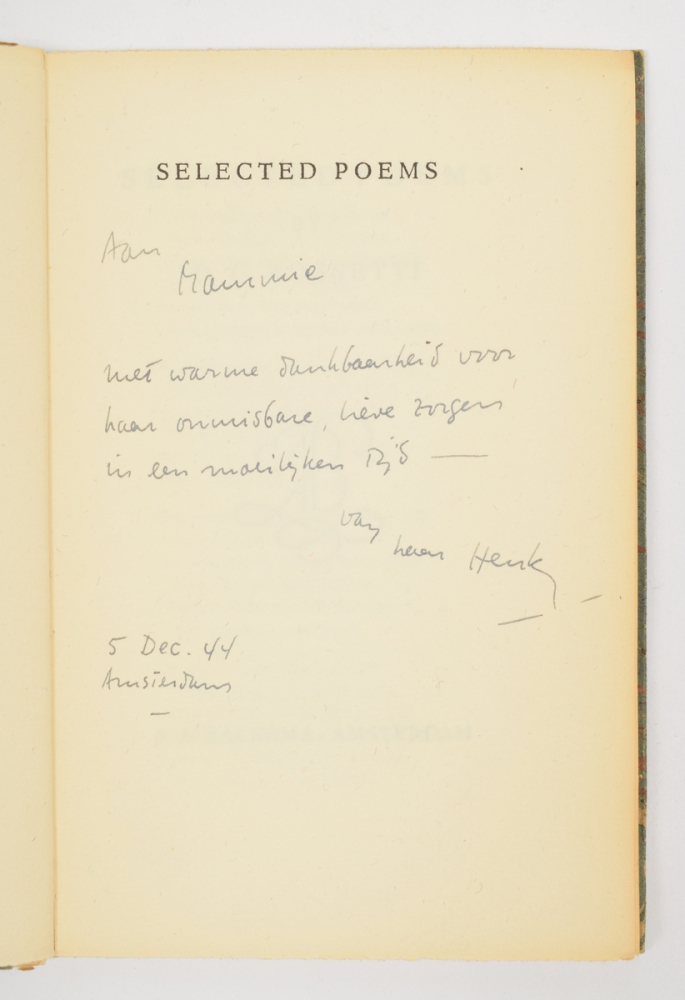 SELECTED POEMS
Aan
Mammie
met warme dankbaarheid voor
haar onmisbare, lieve zorgen
in een moeilijken tijd —
van
haar Henk
5 Dec. 44
Amsterdam